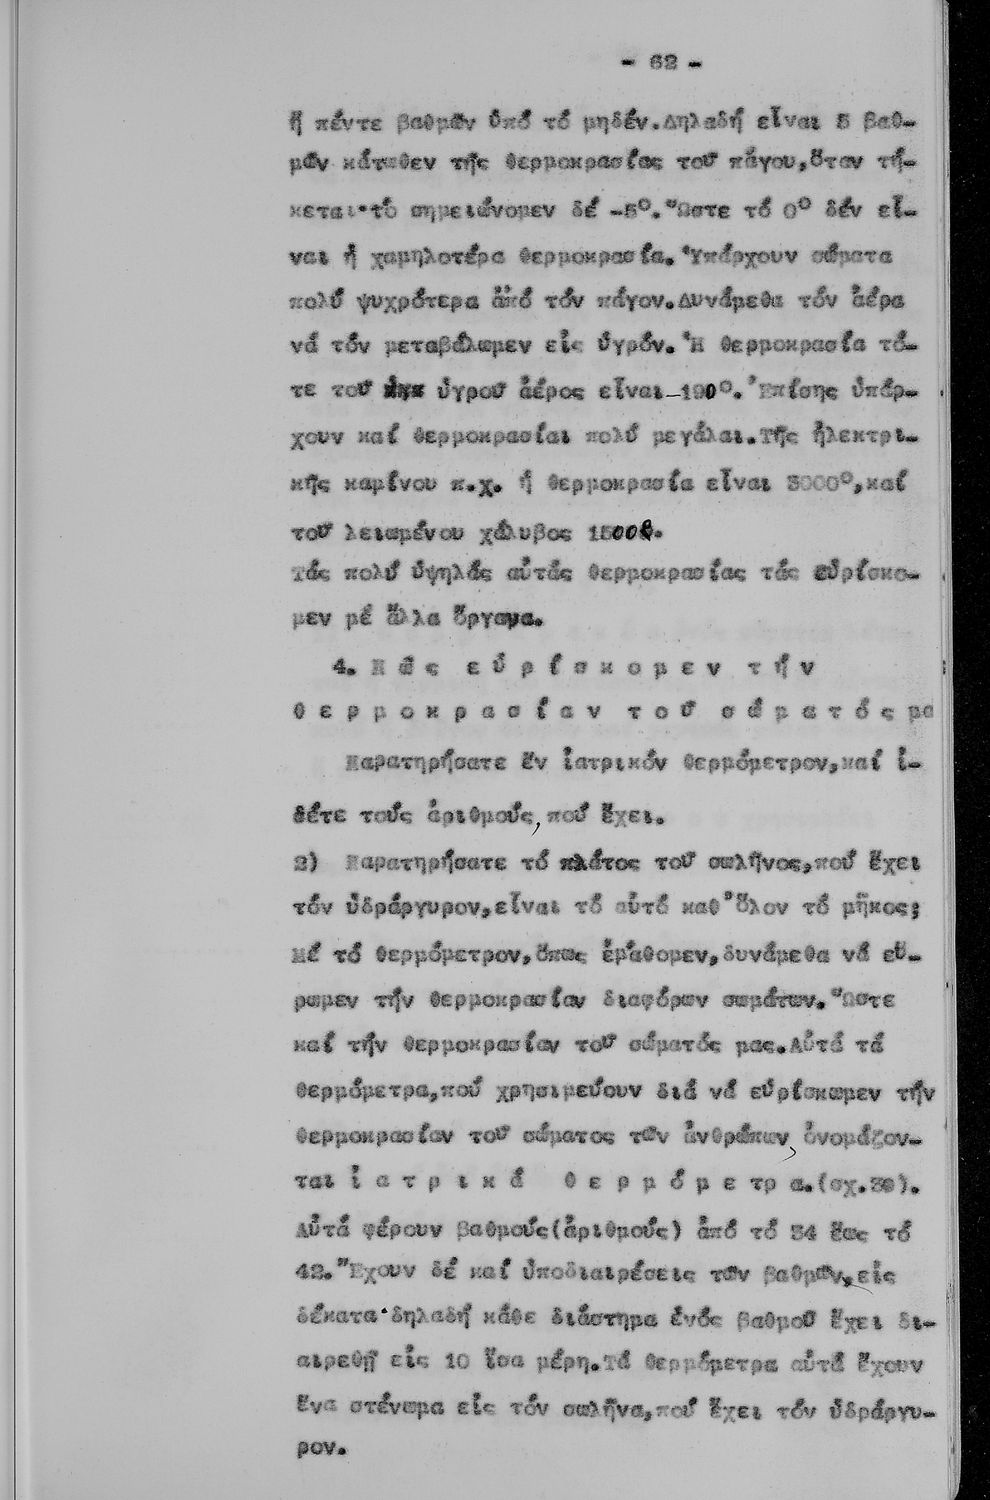 - 62 -
ἤ πέντε βαθμῶν ὑπό τό μηδέν.Δηλαδή εἶναι 5 βαθ-
μῶν κάτωθεν τῆς θερμοκρασίας τοῦ πάγου,ὅταν τή-
κεται·τό σημειώνομεν δέ -5°.Ὥστε τό 0° δέν εἶ-
ναι ἡ χαμηλοτέρα θερμοκρασία.Ὑπάρχουν σώματα
πολύ ψυχρότερα ἀπό τόν πάγον.Δυνάμεθα τόν ἀέρα
νά τόν μεταβάλωμεν εἰς ὑγρόν.Ἡ θερμοκρασία τό-
τε τοῦ ὑγροῦ ἀέρος εἶναι-190°.Ἐπίσης ὑπάρ-
χουν καί θερμοκρασίαι πολύ μεγάλαι.Τῆς ἠλεκτρι-
κῆς καμίνου π.χ. ἡ θερμοκρασία εἶναι 3000°,καί
τοῦ λειωμένου χάλυβος 1500°.
Τάς πολύ ὑψηλάς αὐτάς θερμοκρασίας τάς εὑρίσκο-
μεν μέ ἄλλα ὄργανα.
4. Π ῶ ς ε ὑ ρ ί σ κ ο μ ε ν τ ή ν
θ ε ρ μ ο κ ρ α σ ί α ν τ ο ῦ σ ώ μ α τ ό ς μα
Παρατηρήσατε ἕν ἰατρικόν θερμόμετρον,καί ἰ-
δέτε τούς ἀριθμούς, πού ἔχει.
2) Παρατηρήσατε τό πλάτος τοῦ σωλῆνος,πού ἔχει
τόν ὑδράργυρον,εἶναι τό αὐτό καθ᾽ὅλον τό μῆκος;
Μέ τό θερμόμετρον,ὅπως ἐμάθομεν,δυνάμεθα νά εὕ-
ρωμεν τήν θερμοκρασίαν διαφόρων σωμάτων.Ὥστε
καί τήν θερμοκρασίαν τοῦ σώματός μας.Αὐτά τά
θερμόμετρα,πού χρησιμεύουν διά νά εὑρίσκωμεν τήν
θερμοκρασίαν τοῦ σώματος τῶν ἀνθρώπων, ὀνομάζον-
ται ἰ α τ ρ ι κ ά θ ε ρ μ ό μ ε τρ α.(σχ.39).
Αὐτά φέρουν βαθμούς(ἀριθμούς) ἀπό τό 34 ἕως τό
42.Ἔχουν δέ καί ὑποδιαιρέσεις τῶν βαθμῶν,εἰς
δέκατα·δηλαδή κάθε διάστημα ἑνός βαθμοῦ ἔχει δι-
αιρεθῆ εἰς 10 ἴσα μέρη.Τά θερμόμετρα αὐτά ἔχουν
ἕνα στένωμα εἰς τόν σωλῆνα,πού ἔχει τόν ὑδράργυ-
ρον.